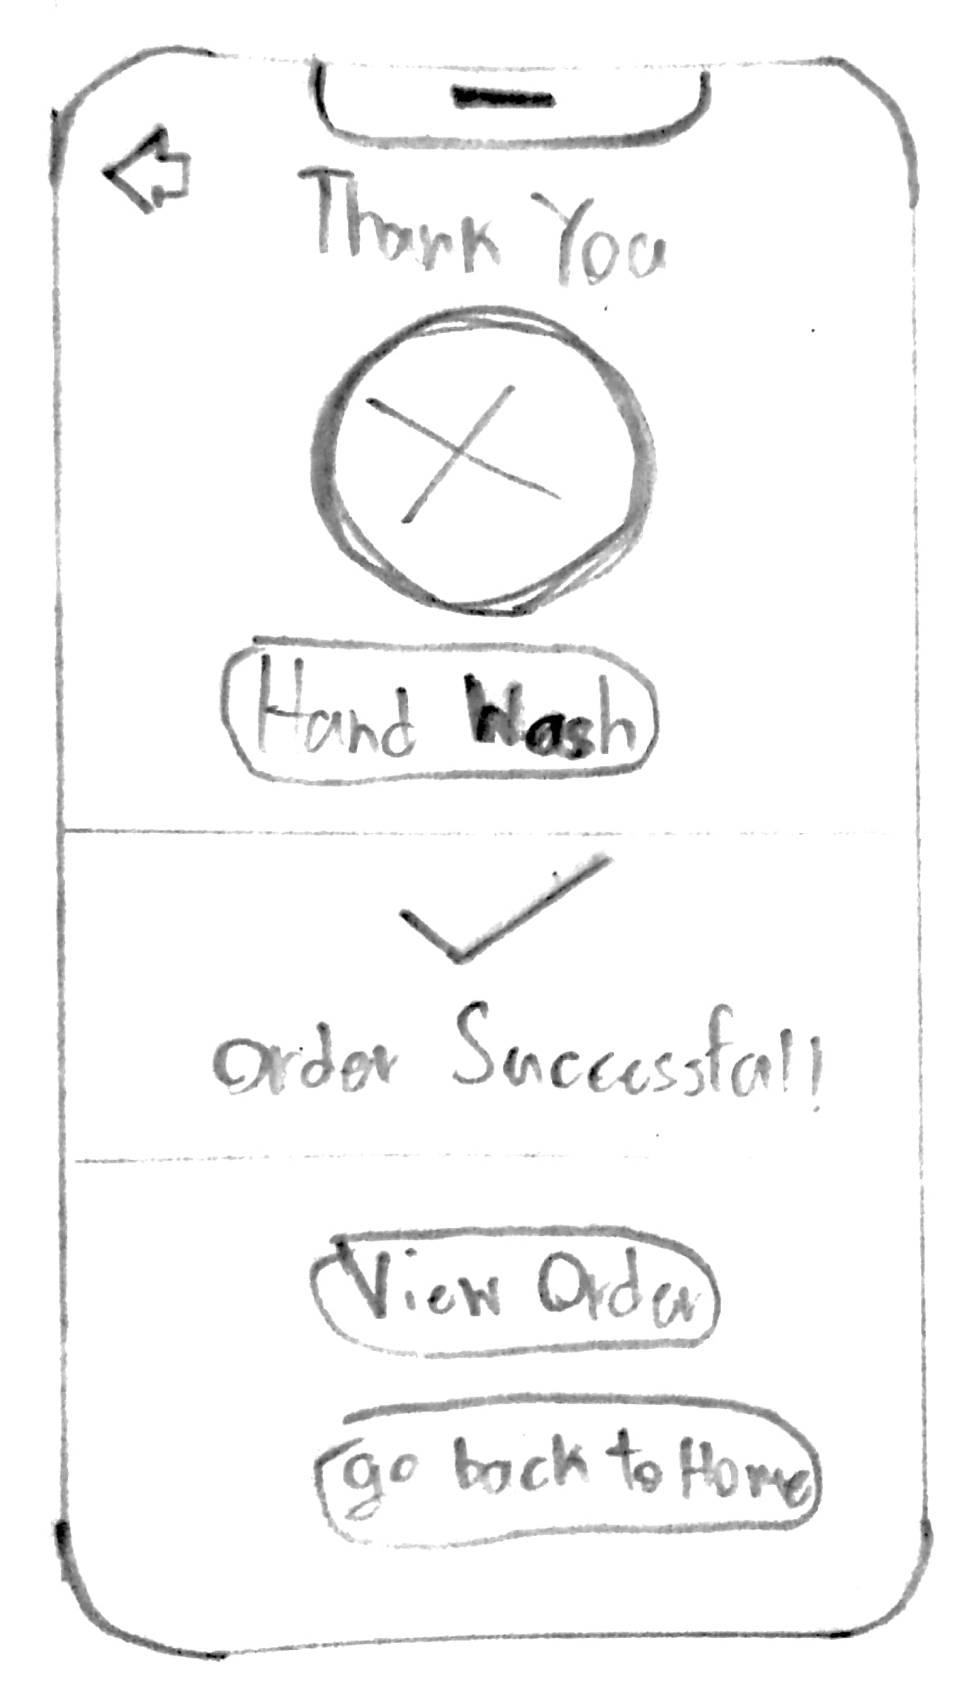 Thank You
Hand Wash
Order Successful!
View Order
go back to Home